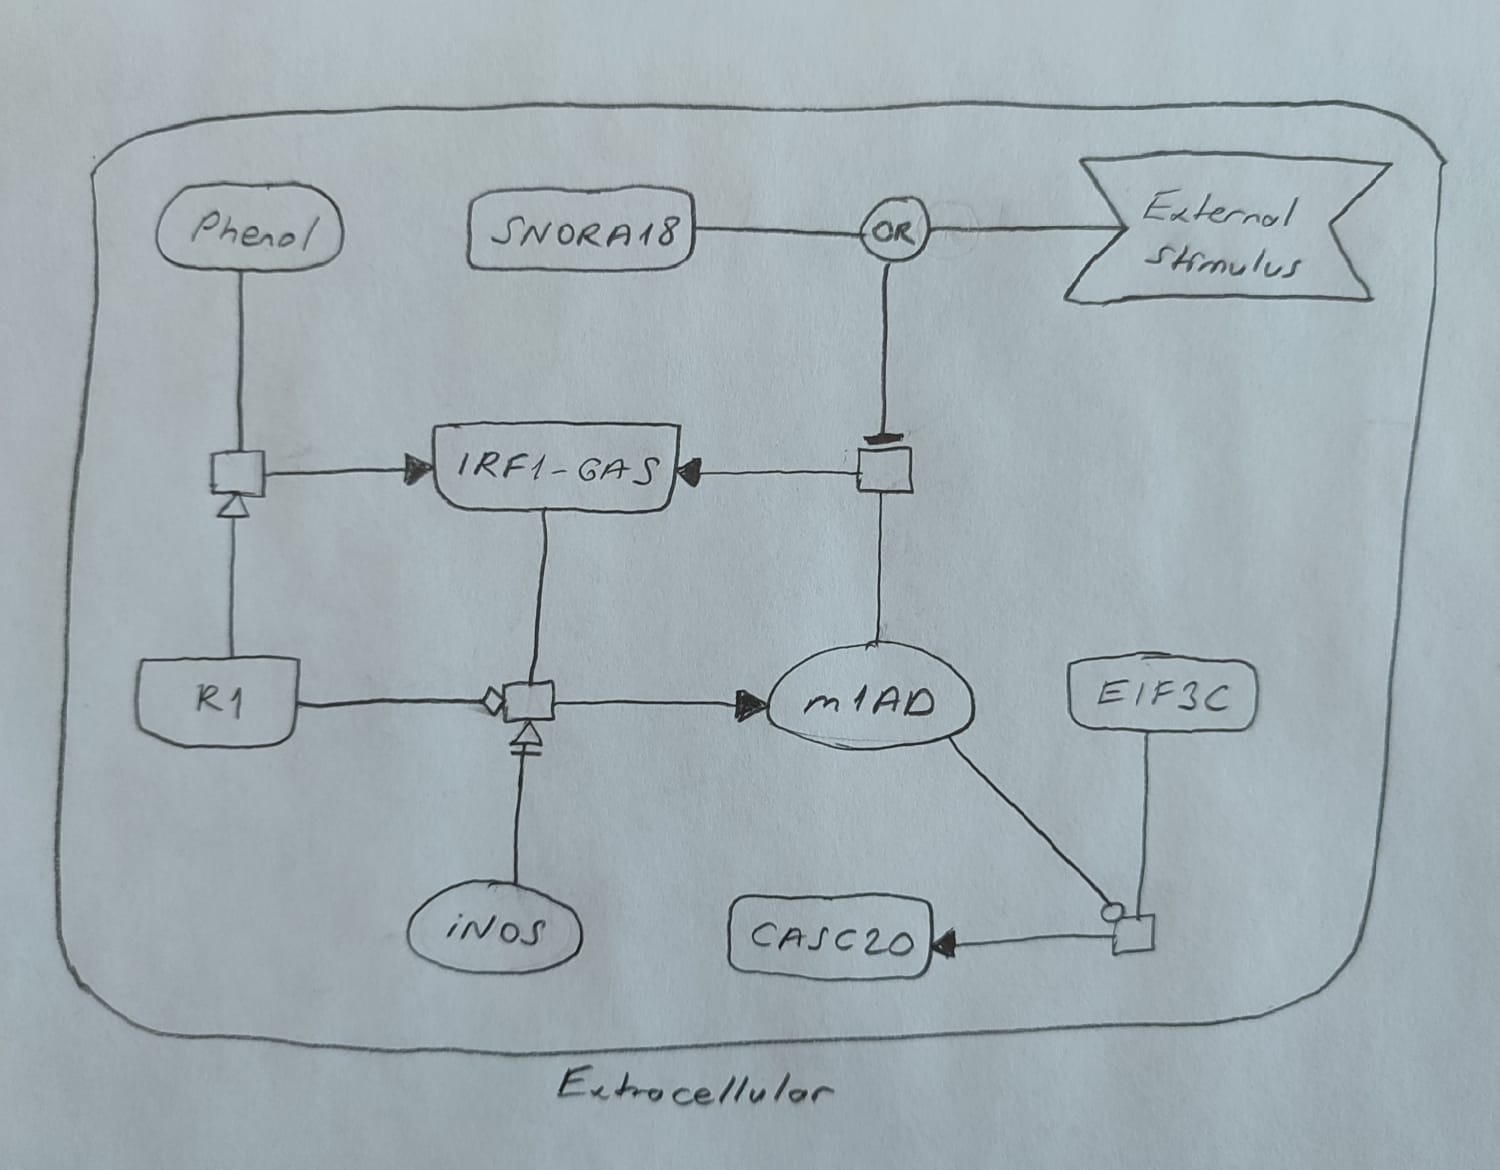 Phenol
SNORA18
OR
External
stimulus
IRF1-GAS
R1
m1AD
EIF3C
iNOS
CASC20
Extracellular